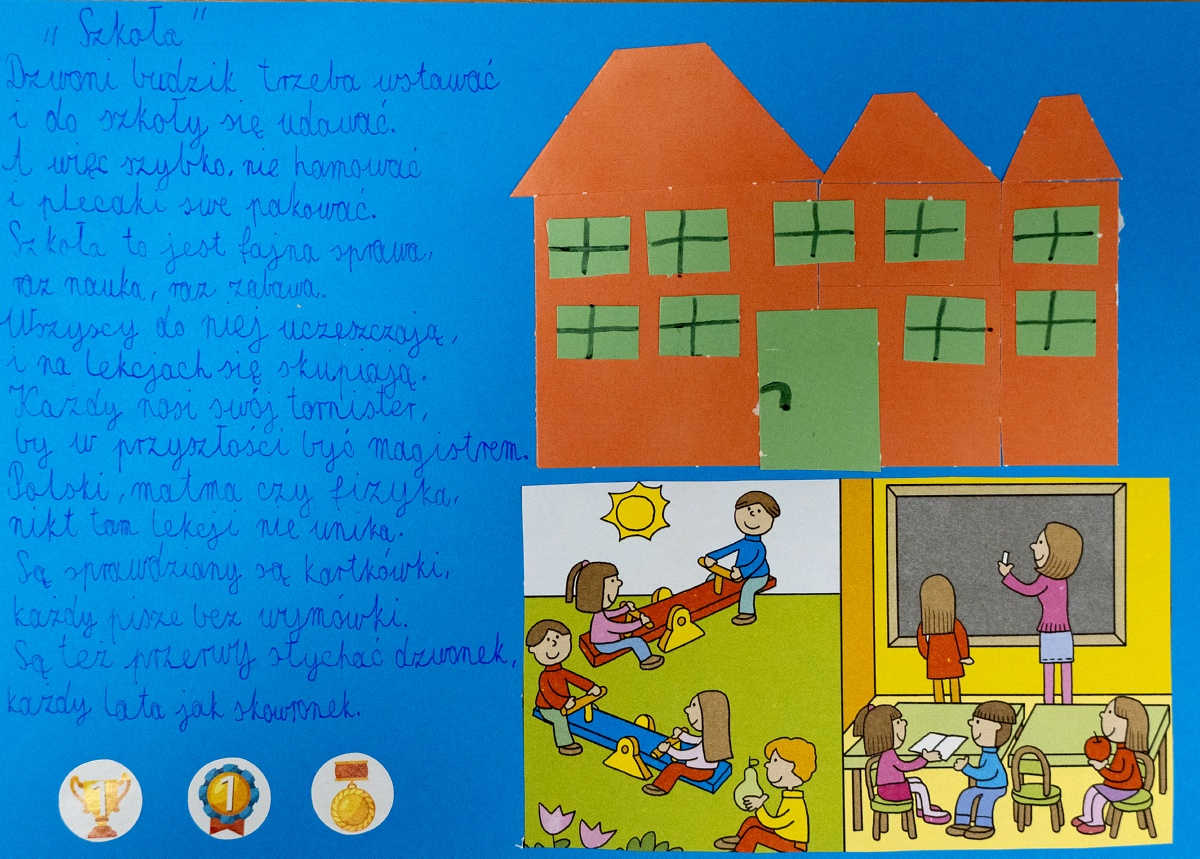 "Szkoła"
Dzwoni budzik trzeba wstawać
i do szkoły się udawać.
A więc szybko, nie hamować
i plecaki swe pakować.
Szkoła to jest fajna sprawa,
raz nauka, raz zabawa.
Wszyscy do niej uczęszczają,
i na lekcjach się skupiają.
Każdy nosi swój tornister,
by w przyszłości być magistrem.
Polski, matma czy fizyka,
nikt tam lekcji nie unika.
Są sprawdziany są kartkówki,
każdy pisze bez wymówki.
Są też przerwy słychać dzwonek,
każdy lata jak skowronek.
1
1